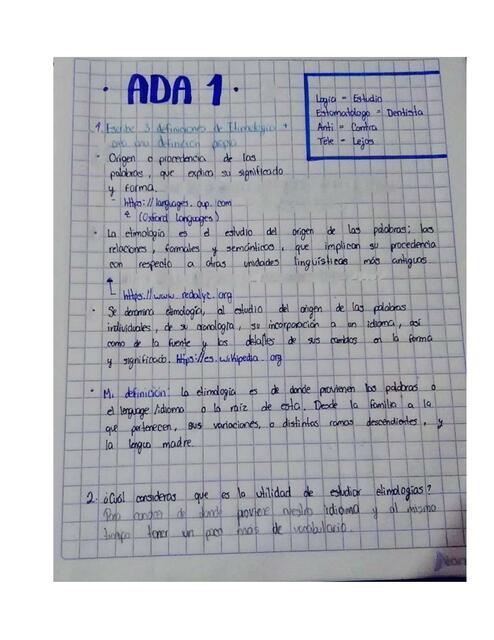 · ADA 1 ·
Logia = Estudio
Estomatologo = Dentista
Anti = Contra
Tele = Lejos
1. Escribe 3 definiciones de Etimologias +
una definición propia
· Origen o procedencia de las
palabras, que explica su significado
y forma.
- https://languages.oup.com
(Oxford Languages)
· La etimología es el estudio del origen de las palabras; las
relaciones, formales y semánticas, que implican su procedencia
con respecto a otras unidades lingüísticas más antiguas
https://www.redalyc.org
· Se denomina etimología, al estudio del origen de las palabras
individuales, de su cronología, su incorporación a un idioma, así
como de la fuente y los detalles de sus cambios en la forma
y significado. https://es.wikipedia.org
· Mi definición: la etimología es de donde provienen las palabras o
el lenguaje/idioma o la raíz de esta. Desde la familia a la
que pertenecen, sus variaciones, o distintas ramas descendientes, y
la lengua madre.
2. ¿Cuál consideras que es la utilidad de estudiar etimologías?
Para de donde proviene nuestro idioma y al mismo
tiempo tener un poco mas de vocabulario.